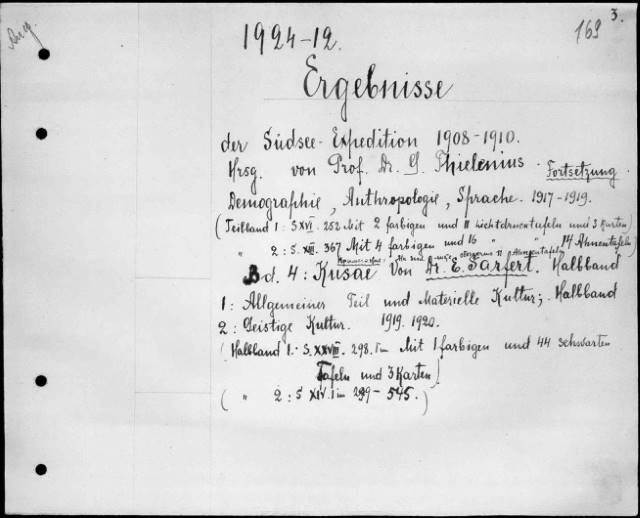 3.
163
1924-12.
Ergebnisse
der Südsee-Expedition 1908-1910.
Hrsg. von Prof. Dr. G. Thilenius. Fortsetzung
Demographie, Anthropologie, Sprache. 1917-1919.
(Teilband 1: S XVI. 252 Mit 2 farbigen und 11 Lichtdrucktafeln und 3 Karten)
" 2: S. XIII. 367 Mit 4 farbigen und 16 " " 14 Ahnentafeln)
Bd. 4: Kusae von Dr. E. Sarfert. Halbband
1: Allgemeiner Teil und Materielle Kultur; Halbband
2: Geistige Kultur. 1919. 1920.
(Halbband 1. S. XXVII. 298. 1 m Mit 1 farbigen und 44 schwarten
Tafeln und 3 Karten)
( " 2: S XIV. 1 m 299-545.)